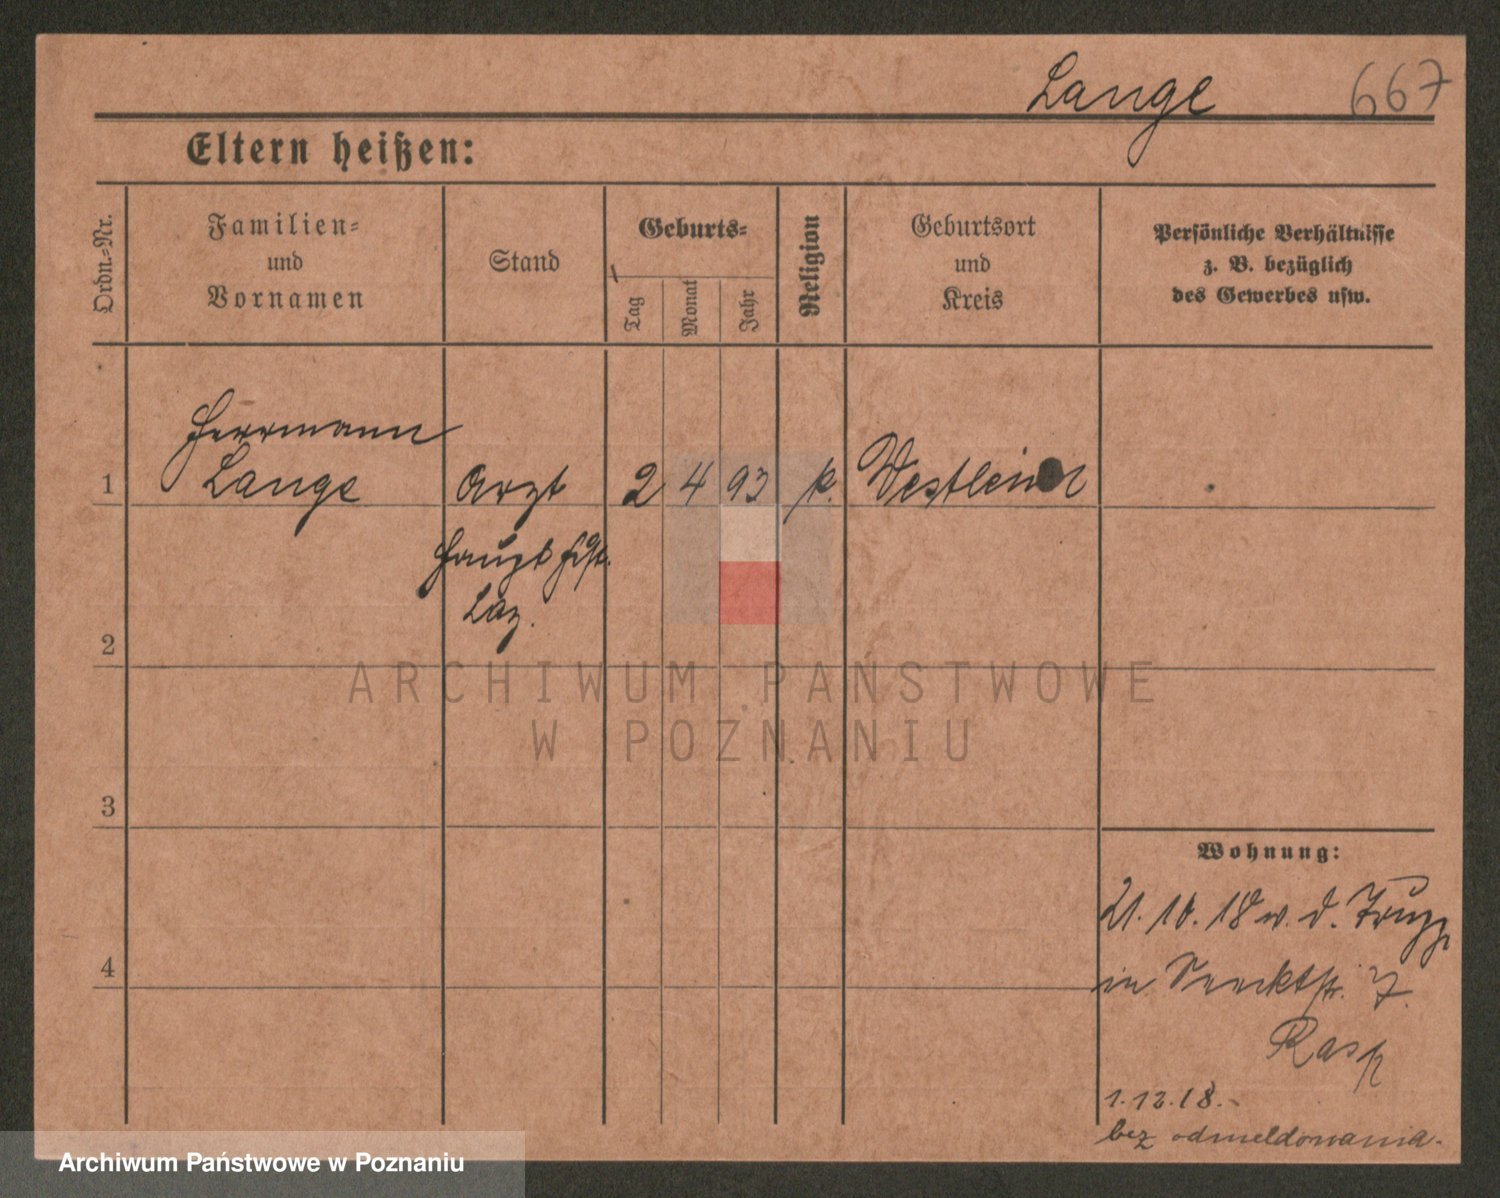 Lange 667
Eltern heißen:
Ordn.-Nr.
Familien-
und
Vornamen
Stand
Geburts-
Tag
Monat
Jahr
Religion
Geburtsort
und
Kreis
Persönliche Verhältnisse
z. B. bezüglich
des Gewerbes usw.
Herrmann
1 Lange Arzt 2 4 93 k.
Haupt Fest.
Laz.
2
3
4
ARCHIWUM PAŃSTWOWE
W POZNANIU
Wohnung:
21. 10. 18 v. d.
in 7.
1.12.18.-
bez odmeldowania.
Archiwum Państwowe w Poznaniu